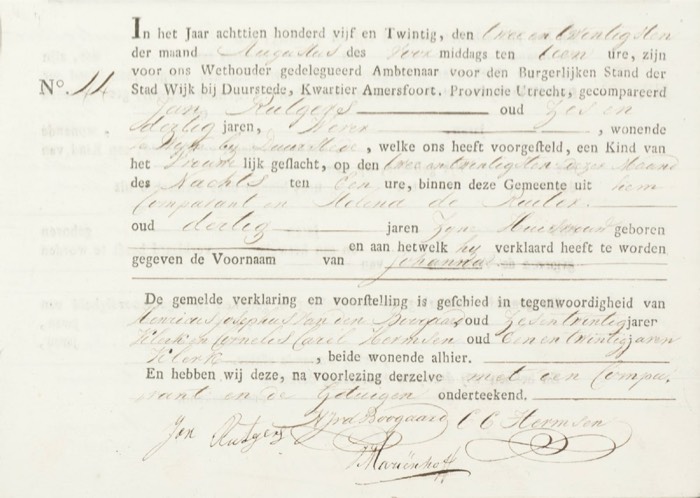 In het Jaar achttien honderd vijf en Twintig, den twee en twintigsten
der maand Augustus des Voor middags ten tien ure, zijn
voor ons Wethouder gedelegueerd Ambtenaar voor den Burgerlijken Stand der
No. 44 Stad Wijk bij Duurstede, Kwartier Amersfoort. Provincie Utrecht, gecompareerd
Jan Rutgers oud Zes en
dertig jaren, wonende
te Wijk by Duurstede, welke ons heeft voorgesteld, een Kind van
het Vrouwe lijk geslacht, op den twee en twintigsten dezer Maand
des Nachts ten Een ure, binnen deze Gemeente uit hem
Comparant en Helena de Ruiter
oud dertig jaren Zyne Huisvrouw geboren
en aan hetwelk hy verklaard heeft te worden
gegeven de Voornaam van Johanna
De gemelde verklaring en voorstelling is geschied in tegenwoordigheid van
Henricus Josephus van den Boogaard oud Zes en twintig jarer
Klerk en Cornelis Carel Hermsen oud Een en twintig jaren
Klerk, beide wonende alhier.
En hebben wij deze, na voorlezing derzelve met den Compa-
rant en de Getuigen onderteekend.
Jan Rutgers HJvd Boogaard C C Hermsen
Mariënhoff